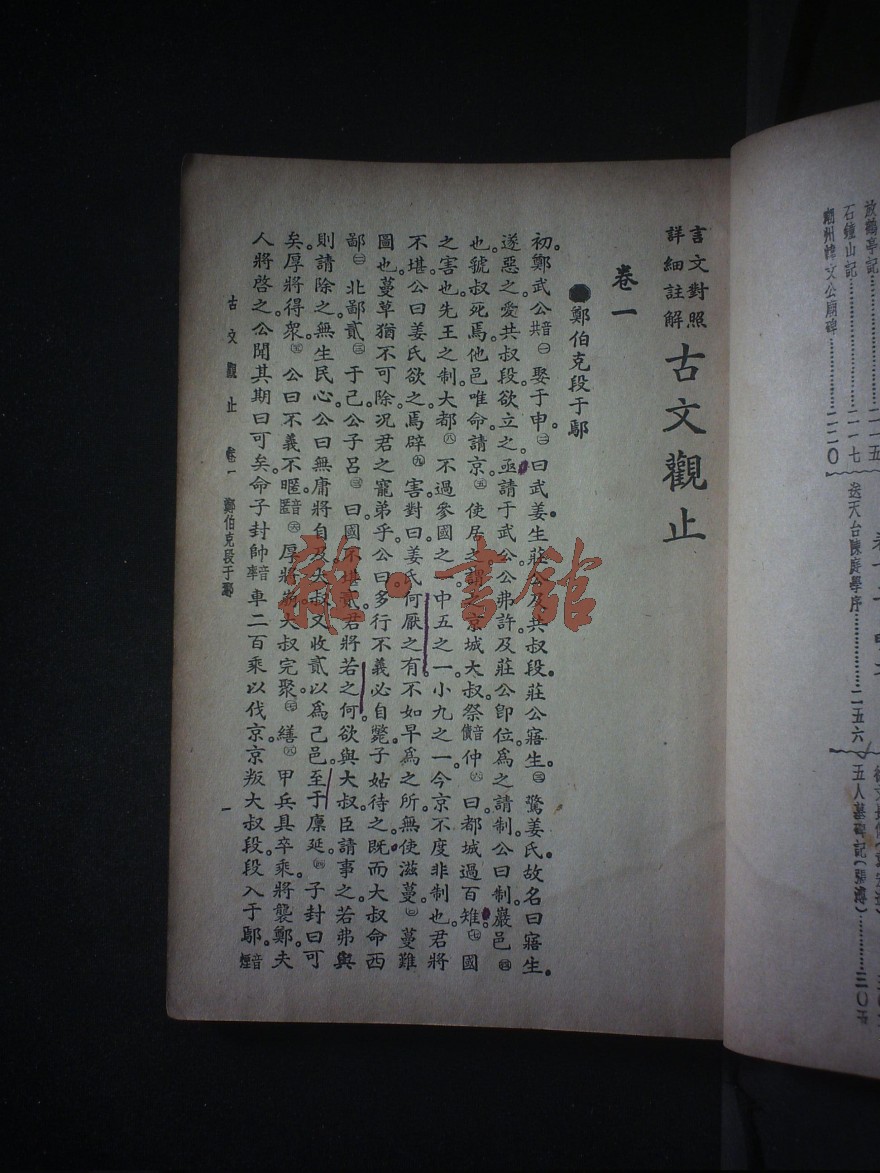 放鶴亭記…………二一五
石鐘山記…………二一七
潮州韓文公廟碑…………二二〇
送天台陳庭學序…………二五六
五人墓碑記(張溥)…………三〇五
言文對照
詳細註解
古文觀止
卷一
●鄭伯克段于鄢
初。鄭武公音共㊀娶于申。㊁曰武姜生莊公及共叔段。莊公寤生。㊂驚姜氏。故名曰寤生。
遂惡之。愛共叔段欲立之。亟請于武公。公弗許。及莊公卽位。爲之請制。公曰制巖邑㊃
也。虢叔死焉。他邑唯命。請京。㊄使居之。謂之京城大叔。祭音債仲㊅曰都城過百雉。㊆國
之害也。先王之制。大都㊇不過參國之一。中五之一。小九之一。今京不度。非制也。君將
不堪。公曰姜氏欲之。焉辟㊈害。對曰姜氏何厭之有。不如早爲之所。無使滋蔓。㊉蔓難
圖也。蔓草猶不可除。况君之寵弟乎。公曰多行不義必自斃。子姑待之。既而大叔命西
鄙北鄙貳于己。公子呂曰國不堪貳。君將若之何。欲與大叔。臣請事之。若弗與
則請除之。無生民心。公曰無庸。將自及。大叔又收貳以爲己邑。至于廩延。子封曰可
矣。厚將得衆。公曰不義不暱。厚將崩。大叔完聚。繕甲兵。具卒乘。將襲鄭。夫
人將啓之。公聞其期曰可矣。命子封帥音率車二百乘以伐京。京叛大叔段。段入于鄢。音煙
古文觀止 卷一 鄭伯克段于鄢 一
雜·書館